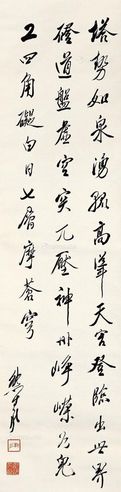 塔势如泉涌孤高耸天宫登临出世界
磴道盘虚空突兀压神州峥嵘如鬼
工四角碍白日七层摩苍穹